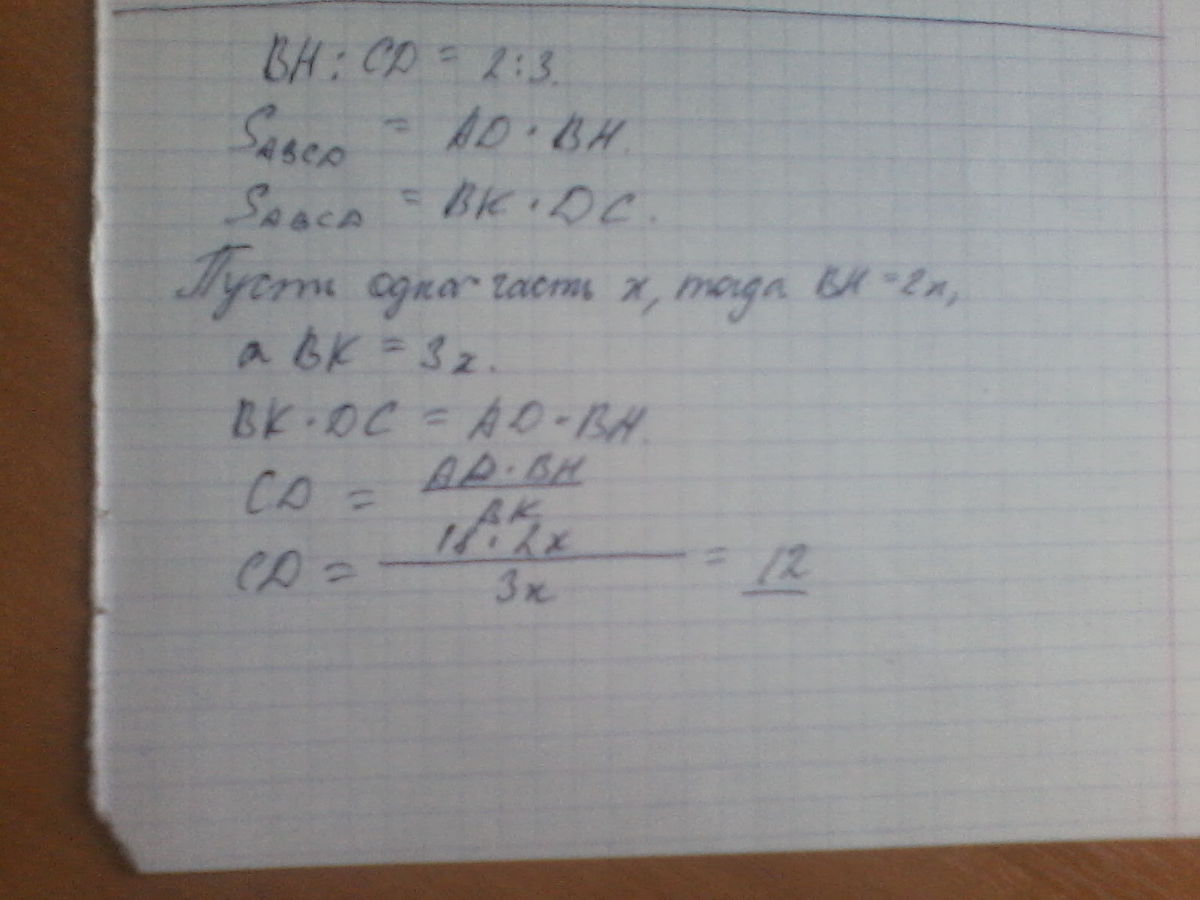 BH : CD = 2:3.
S ABCD = AD · BH.
S ABCD = BK · DC.
Пусть одна часть x, тогда BH = 2x,
а BK = 3x.
BK · DC = AD · BH.
CD = AD · BH / BK
CD = 18 · 2x / 3x = 12